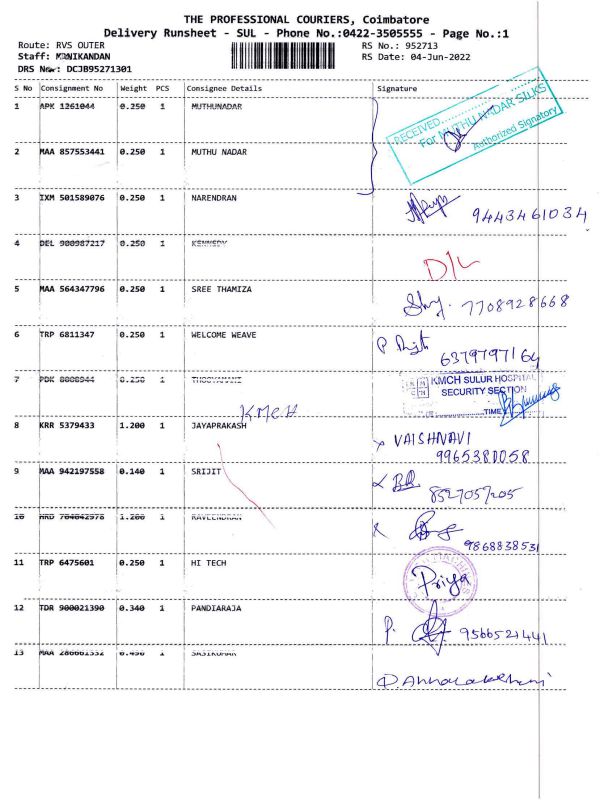 THE PROFESSIONAL COURIERS, Coimbatore
Delivery Runsheet - SUL - Phone No.:0422-3505555 - Page No.:1
Route: RVS OUTER RS No.: 952713
Staff: MANIKANDAN RS Date: 04-Jun-2022
DRS No.: DCJB95271301
S No Consignment No Weight PCS Consignee Details Signature
1 APK 1261044 0.250 1 MUTHUNADAR
RECEIVED
For MUTHU NADAR SILKS
Authorized Signatory
2 MAA 857553441 0.250 1 MUTHU NADAR
3 IXM 501589076 0.250 1 NARENDRAN
9443461034
4 DEL 900987217 0.250 1 KENNEDY
D/L
5 MAA 564347796 0.250 1 SREE THAMIZA
7708928668
6 TRP 6811347 0.250 1 WELCOME WEAVE
6379797164
7 PDK 8088944 0.250 1
KMCH SULUR HOSPITAL
SECURITY SECTION
TIME
KMCH
8 KRR 5379433 1.200 1 JAYAPRAKASH
VAISHNAVI
9965380058
9 MAA 942197558 0.140 1 SRIJIT
8527057205
10 1.200 1 RAVEENDRAN
9868838531
11 TRP 6475601 0.250 1 HI TECH
Priya
12 TDR 900021390 0.340 1 PANDIARAJA
P. 9566521441
13 MAA 286661332 0.490 1 SASIKUMAR